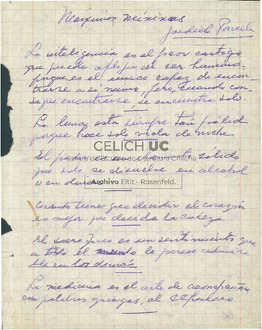 Máximas mínimas
Jardiel Poncela
La inteligencia es el peor castigo
que puede afligir al ser humano
porque es el único capaz de encon-
trarse a sí mismo, pero, cuando con-
sigue encontrarse se encuentra solo.
La luna está siempre tan pálida
porque hace solo vida de noche
CELICH UC
El pasado es un
sólido
que solo se disuelve en alcohol
o en
Archivo Eltit - Rosenfeld.
Cuando tienes que decidir el corazón
es mejor que decida la cabeza.
El sacrificio es un sentimiento que
a todo el mundo le parece
en los demás
La medicina es el arte de acompañar
con palabras griegas, al sepulcro